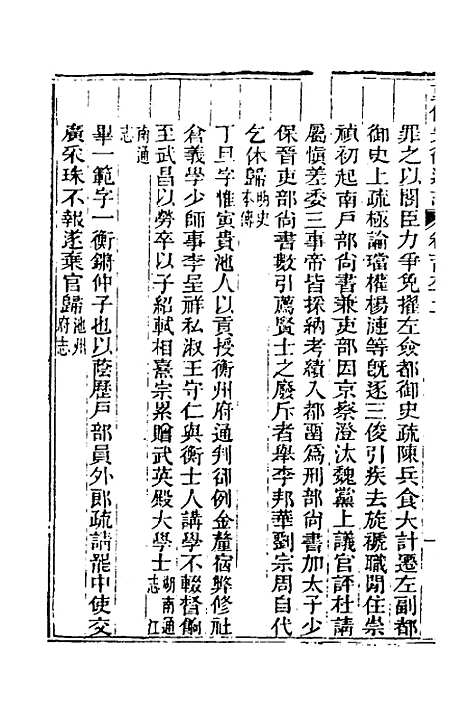 罪之以閣臣力爭免擢左僉都御史疏陳兵食大計遷左副都
御史上疏極論璫權楊漣等旣逐三俊引疾去旋褫職閒住崇
禎初起南戶部尚書兼吏部因京察澄汰魏黨上議官評杜請
屬愼差委三事帝皆採納考績入都畱爲刑部尚書加太子少
保晉吏部尚書數引薦賢士之廢斥者舉李邦華劉宗周自代
乞休歸明史本傳
丁旦字惟寅貴池人以貢授衡州府通判卻例金釐宿弊修社
倉義學少師事李呈祥私淑王守仁與衡士人講學不輟督餉
至武昌以勞卒以子紹軾相熹宗累贈武英殿大學士湖南通志 江
南通志
畢一範字一衡鏘仲子也以蔭歷戶部員外郎疏請罷中使交
廣采珠不報遂棄官歸池州府志